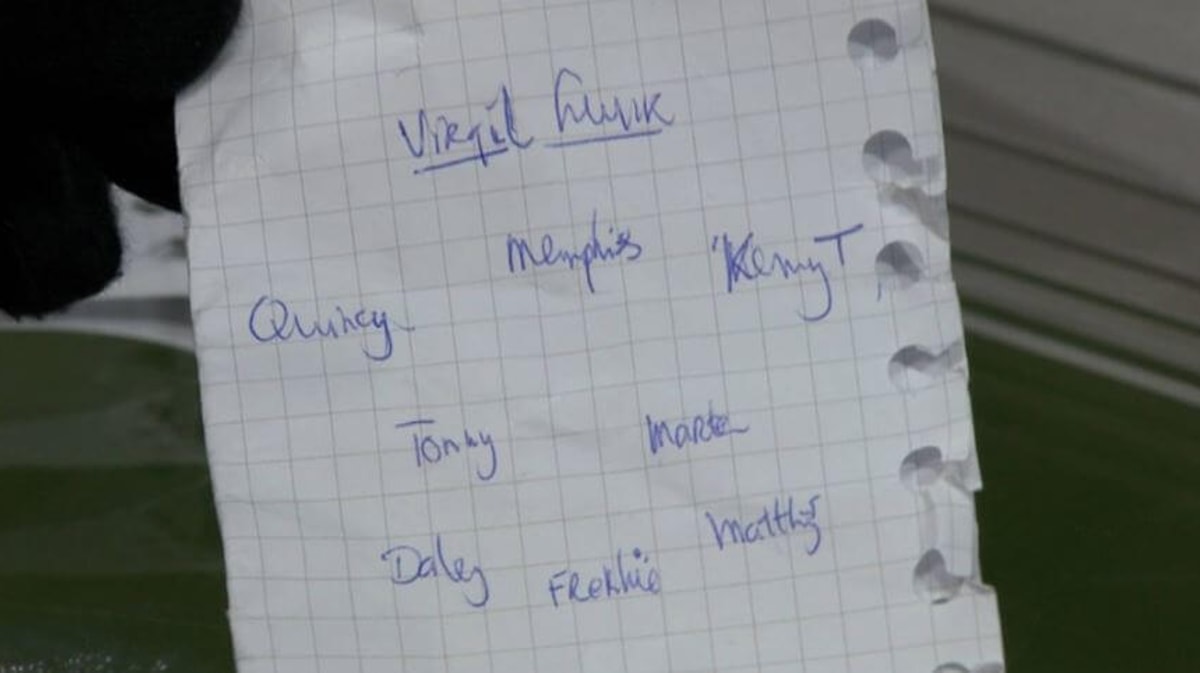 Virgil Luuk
Memphis 'Kenny T
Quincy
Tonny Marten
Matthijs
Daley Frenkie